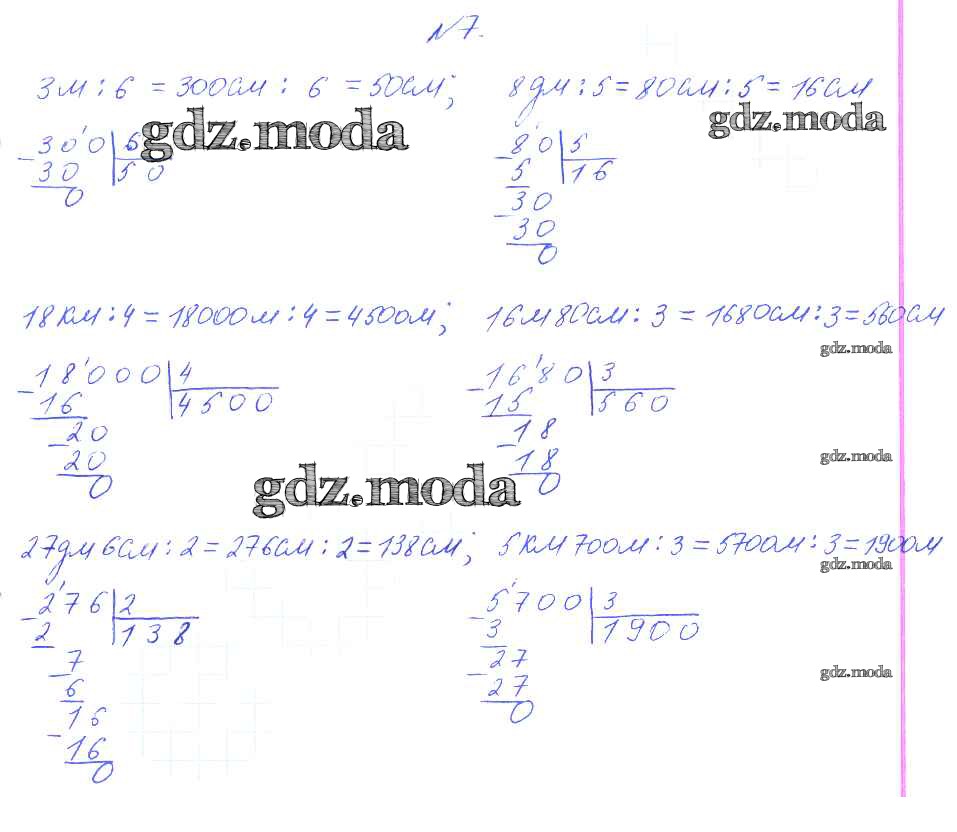 №7.
3м : 6 = 300см : 6 = 50см; 8дм : 5 = 80см : 5 = 16см
gdz.moda
gdz.moda
300 6
30 50
0
80 5
5 16
30
30
0
18км : 4 = 18000м : 4 = 4500м; 16м80см : 3 = 1680см : 3 = 560см
gdz.moda
18000 4
16 4500
20
20
0
1680 3
15 560
18
18
0
gdz.moda
gdz.moda
27дм 6см : 2 = 276см : 2 = 138см; 5км 700м : 3 = 5700м : 3 = 1900м
gdz.moda
276 2
2 138
7
6
16
16
0
5700 3
3 1900
27
27
0
gdz.moda